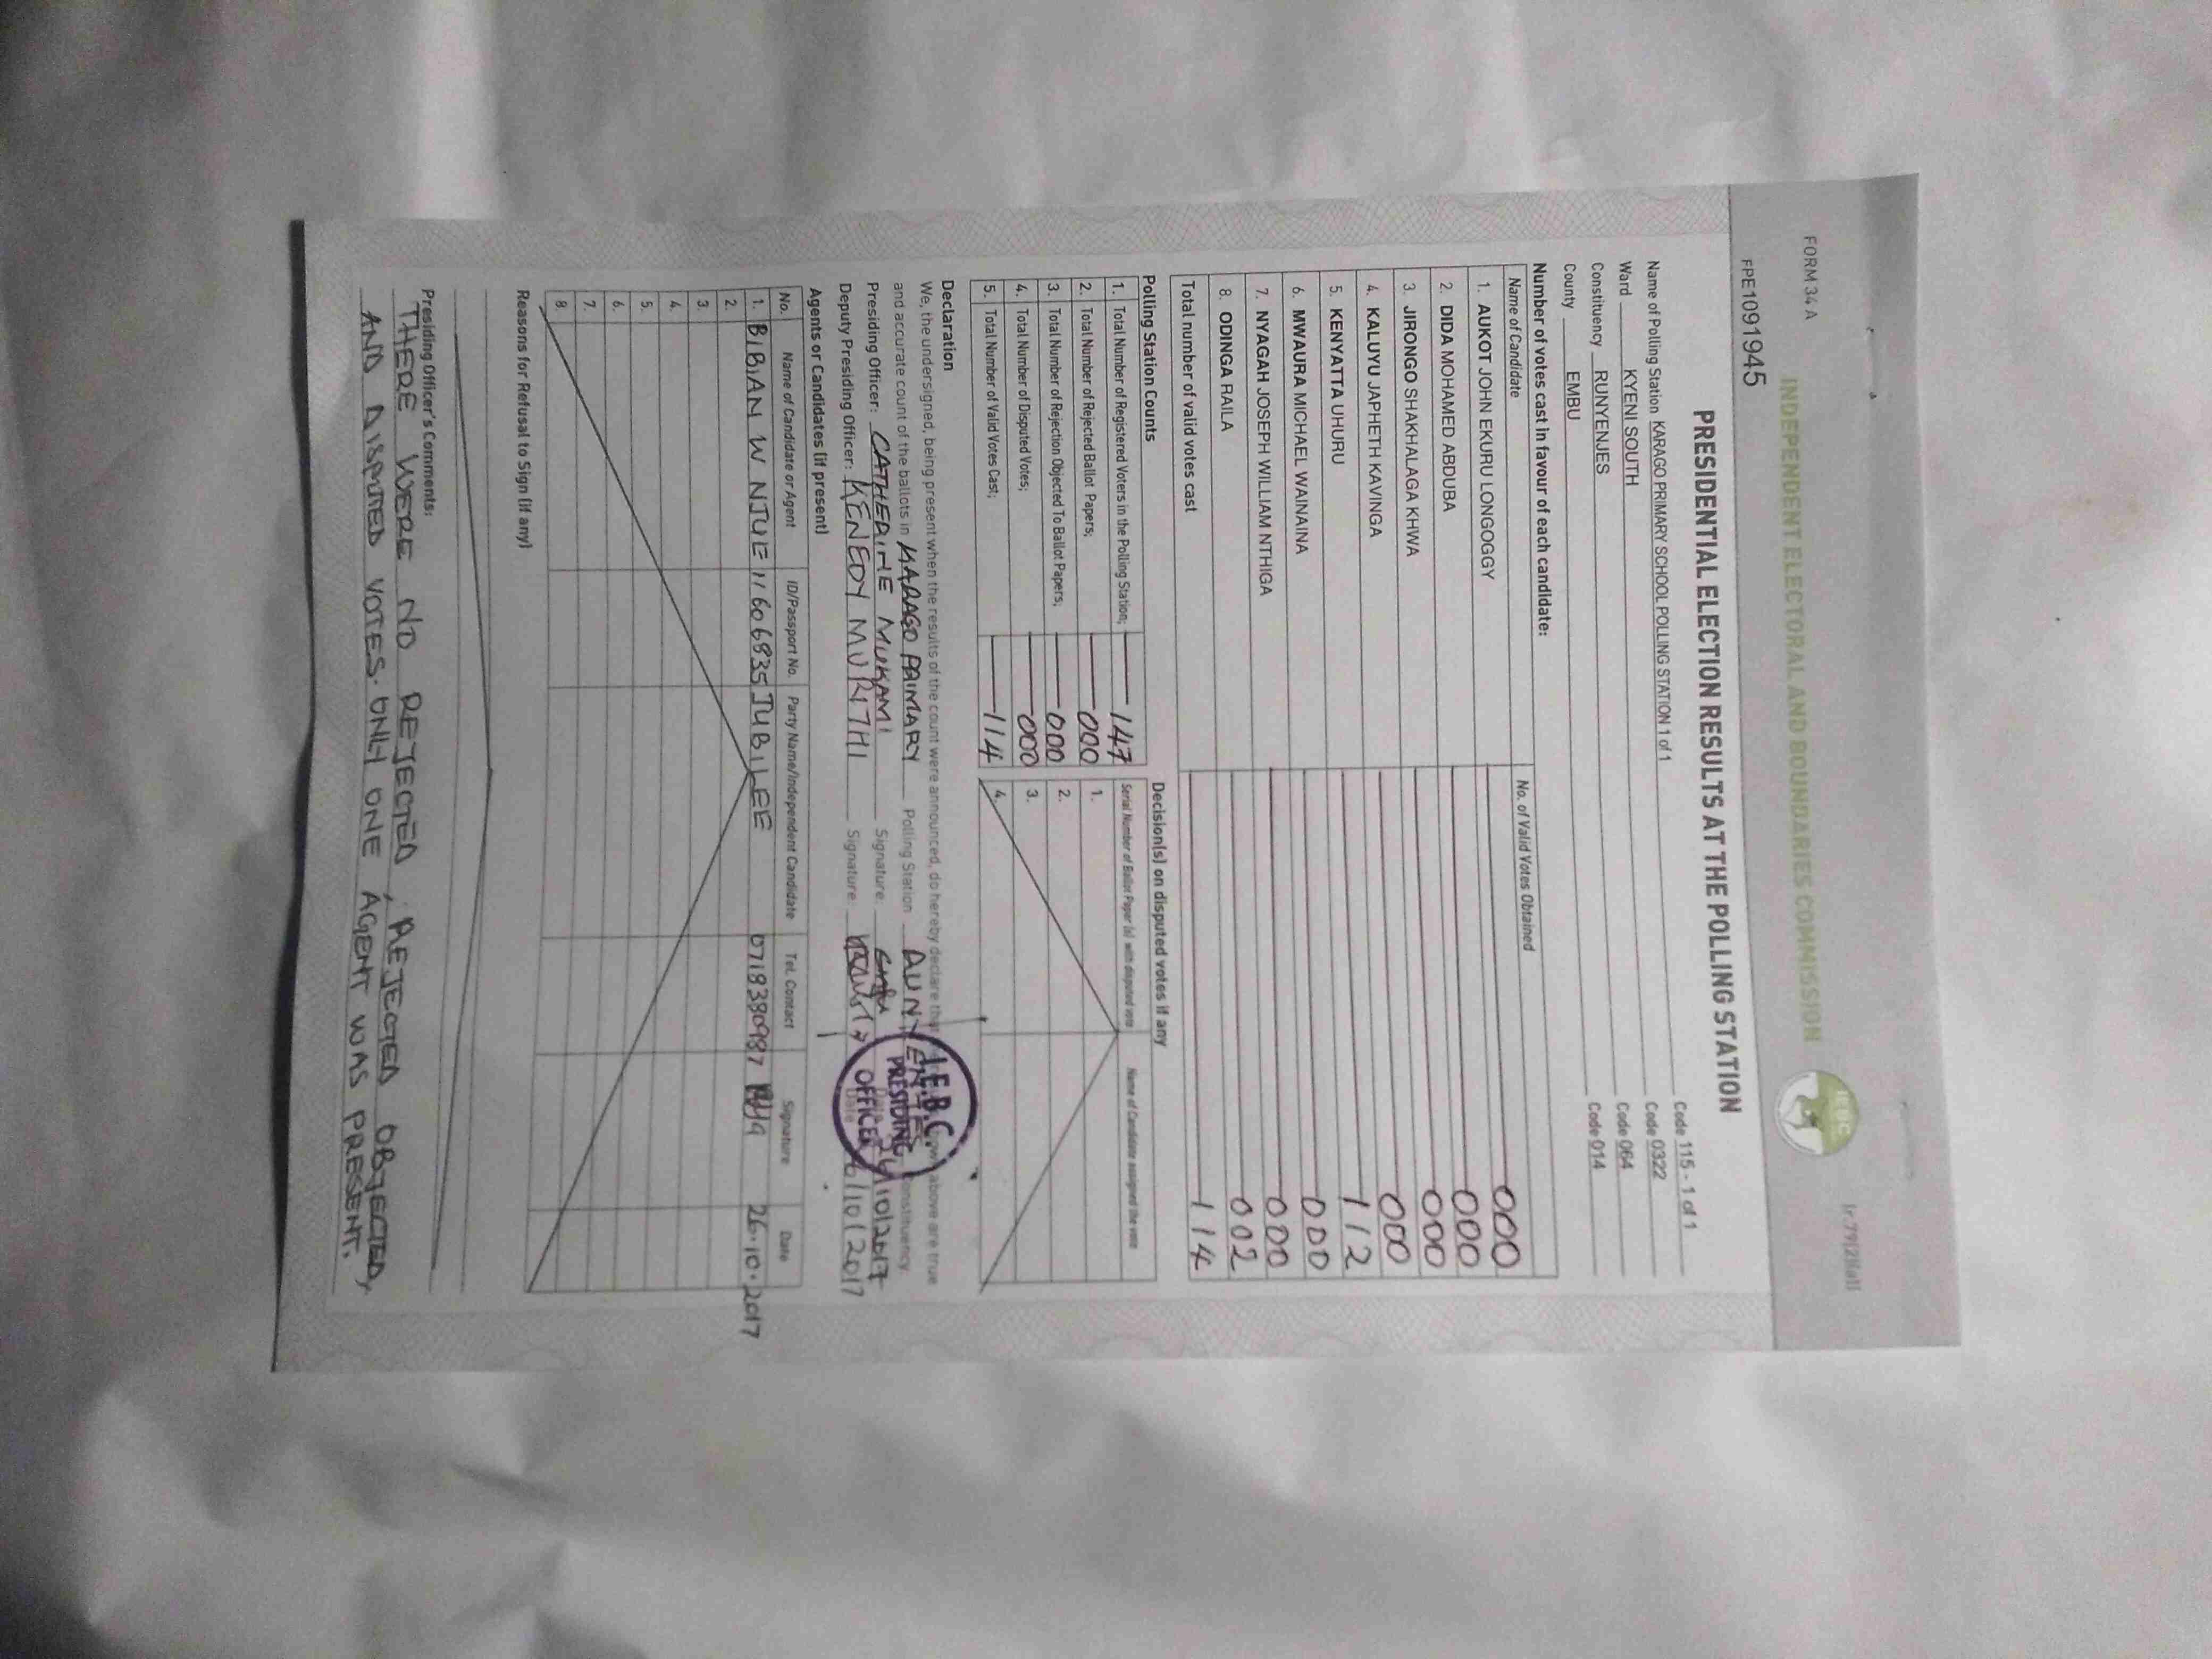 FORM 34 A
INDEPENDENT ELECTORAL AND BOUNDARIES COMMISSION
IEBC
FPE1091945
PRESIDENTIAL ELECTION RESULTS AT THE POLLING STATION
Name of Polling Station KARAGO PRIMARY SCHOOL POLLING STATION 1 of 1 Code 115 - 1 of 1
Ward KYENI SOUTH Code 0322
Constituency RUNYENJES Code 064
County EMBU Code 014
Number of votes cast in favour of each candidate:
Name of Candidate No. of Valid Votes Obtained
1. AUKOT JOHN EKURU LONGOGGY 000
2. DIDA MOHAMED ABDUBA 000
3. JIRONGO SHAKHALAGA KHWA 000
4. KALUYU JAPHETH KAVINGA 000
5. KENYATTA UHURU 112
6. MWAURA MICHAEL WAINAINA 000
7. NYAGAH JOSEPH WILLIAM NTHIGA 000
8. ODINGA RAILA 002
Total number of valid votes cast 114
Polling Station Counts
1. Total Number of Registered Voters in the Polling Station; 147
2. Total Number of Rejected Ballot Papers; 000
3. Total Number of Rejection Objected To Ballot Papers; 000
4. Total Number of Disputed Votes; 000
5. Total Number of Valid Votes Cast; 114
Decision(s) on disputed votes if any
Serial Number of Ballot Paper (s) with disputed vote Name of Candidate assigned the vote
1.
2.
3.
4.
Declaration
We, the undersigned, being present when the results of the count were announced, do hereby declare that above are true
and accurate count of the ballots in KARAGO PRIMARY Polling Station RUNYENJES Constituency.
Presiding Officer: CATHERINE MUKAMI Signature: 26/10/2017
Deputy Presiding Officer: KENEDY MURITHI Signature: Date 26/10/2017
I.E.B.C.
PRESIDING
OFFICER
Agents or Candidates (if present)
No. Name of Candidate or Agent ID/Passport No. Party Name/Independent Candidate Tel. Contact Signature Date
1. BIBIAN W NJUE 11606835 JUBILEE 0718380987 26.10.2017
2.
3.
4.
5.
6.
7.
8.
Reasons for Refusal to Sign (if any)
Presiding Officer's Comments:
THERE WERE NO REJECTED, REJECTED OBJECTED,
AND DISPUTED VOTES. ONLY ONE AGENT WAS PRESENT.